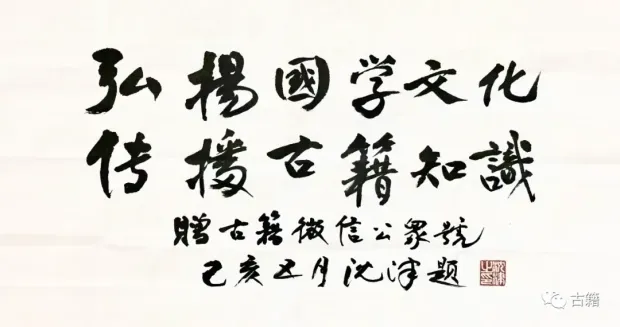 弘揚國学文化
传播古籍知識
贈古籍微信公眾號
己亥五月沈津題
古籍